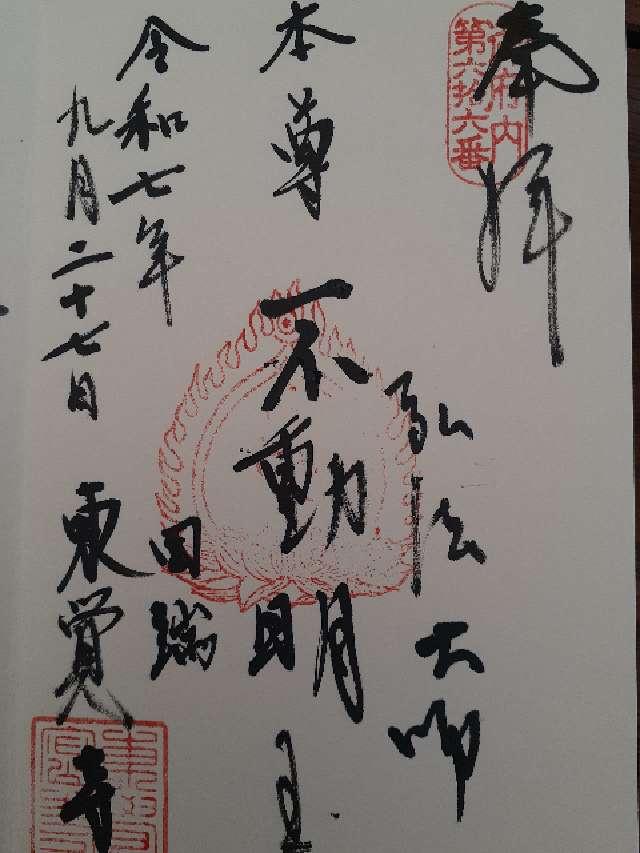 奉拝
御府内
第六拾六番
弘法大師
本尊 不動明王
令和七年
田端
九月二十七日
東覚寺